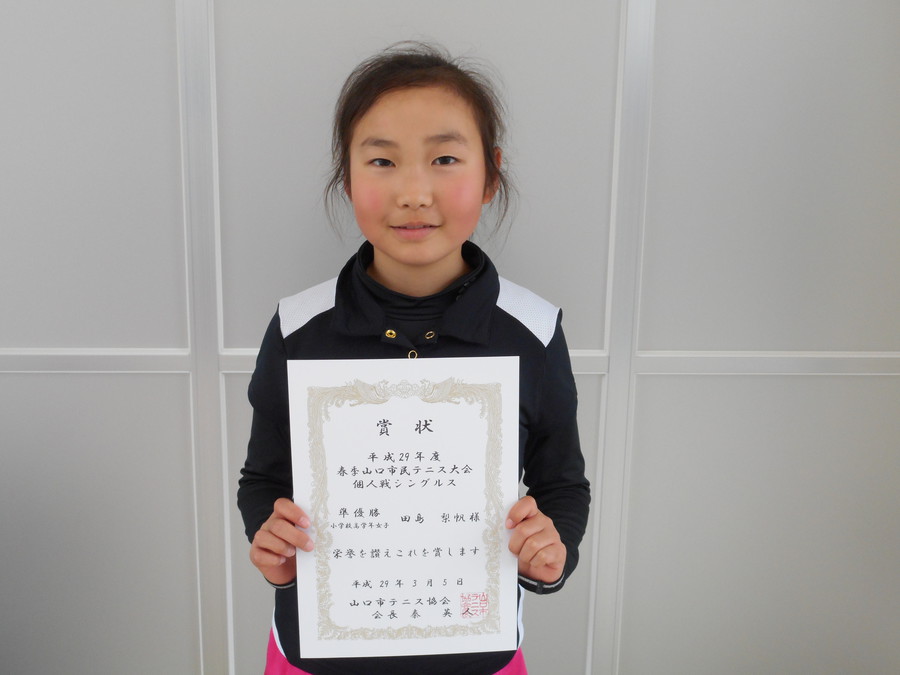 賞状
平成29年度
春季山口市民テニス大会
個人戦シングルス
準優勝
小学校高学年女子
田島 梨帆 様
栄誉を讃えこれを賞します
平成29年3月5日
山口市テニス協会
会長 泰 英人